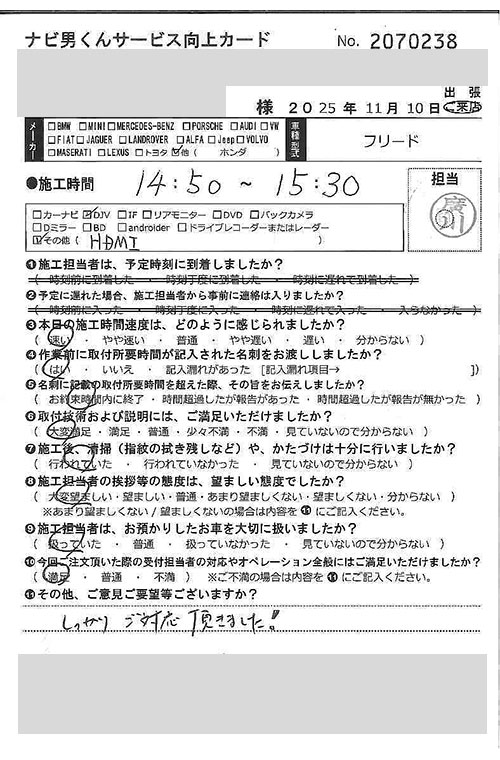 ナビ男くんサービス向上カード No. 2070238
様 2025年11月10日 出張・ご来店
メーカー □BMW □MINI □MERCEDES-BENZ □PORSCHE □AUDI □VW
□FIAT □JAGUER □LANDROVER □ALFA □Jeep □VOLVO
□MASERATI □LEXUS □トヨタ ☑他( ホンダ )
車種型式 フリード
●施工時間 14:50 ~ 15:30
担当
□カーナビ ☑DJV □IF □リアモニター □DVD □バックカメラ
□Dミラー □BD □androider □ドライブレコーダーまたはレーダー
☑その他( HDMI )
❶施工担当者は、予定時刻に到着しましたか?
( 時刻前に到着した ・ 時刻丁度に到着した ・ 時刻に遅れて到着した )
❷予定に遅れた場合、施工担当者から事前に連絡は入りましたか?
( 時刻前に入った ・ 時刻丁度に入った ・ 時刻に遅れて入った ・ 入らなかった )
❸本日の施工時間速度は、どのように感じられましたか?
( 速い ・ やや速い ・ 普通 ・ やや遅い ・ 遅い ・ 分からない )
❹作業前に取付所要時間が記入された名刺をお渡ししましたか?
( はい ・ いいえ ・ 記入漏れがあった [記入漏れ項目→ ])
❺名刺に記載の取付所要時間を超えた際、その旨をお伝えしましたか?
( お約束時間内に終了 ・ 時間超過したが報告があった ・ 時間超過したが報告が無かった )
❻取付技術および説明には、ご満足いただけましたか?
( 大変満足 ・ 満足 ・ 普通 ・ 少々不満 ・ 不満 ・ 見ていないので分からない )
❼施工後、清掃(指紋の拭き残しなど)や、かたづけは十分に行いましたか?
( 行われていた ・ 行われていなかった ・ 見ていないので分からない )
❽施工担当者の挨拶等の態度は、望ましい態度でしたか?
( 大変望ましい・望ましい・普通・あまり望ましくない・望ましくない・分からない )
※あまり望ましくない/望ましくないの場合は内容を⓫にご記入ください。
❾施工担当者は、お預かりしたお車を大切に扱いましたか?
( 扱っていた ・ 普通 ・ 扱っていなかった ・ 見ていないので分からない )
❿今回ご注文頂いた際の受付担当者の対応やオペレーション全般にはご満足いただけましたか?
( 満足 ・ 普通 ・ 不満 ) ※ご不満の場合は内容を⓫にご記入ください。
⓫その他、ご意見ご要望等ございますか?
しっかりご対応頂きました!